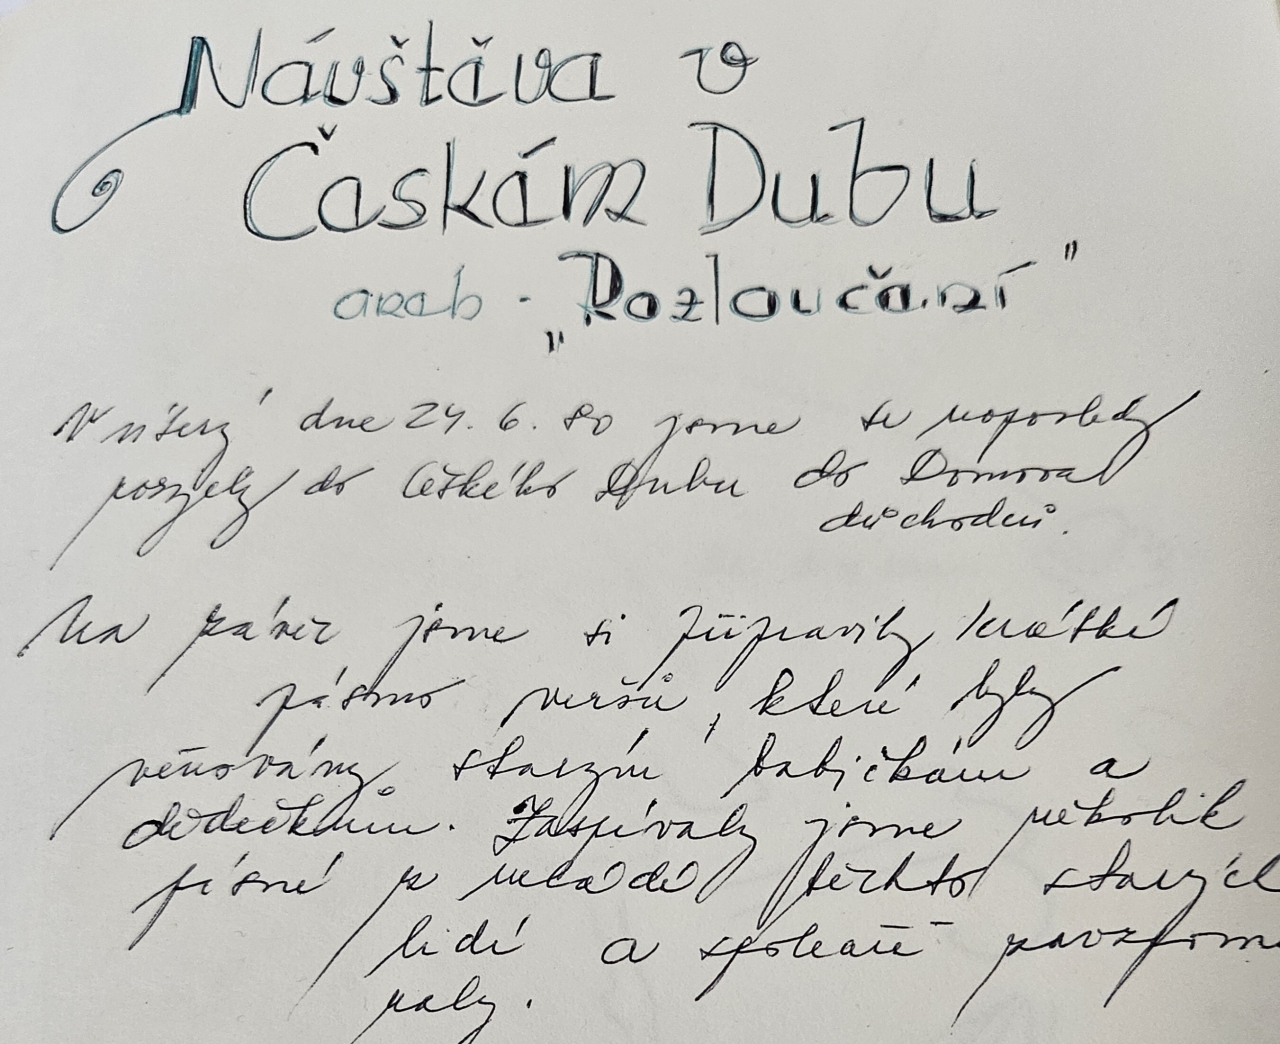 Návštěva v
Českém Dubu
aneb - „Rozloučení"
V úterý dne 24. 6. 80 jsme se naposledy
rozjely do Českého Dubu do Domova
důchodců.
Na závěr jsme si připravily krátké
pásmo veršů, které byly
věnovány starým babičkám a
dědečkům. Zazpívaly jsme několik
písní z mládí těchto starých
lidí a společně zavzpomí
naly.